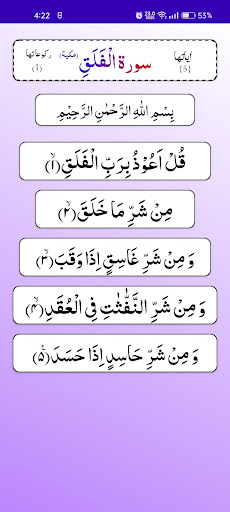 4:22 53%
اياتها سورة الْفَلَقِ (مكية) ركوعاتها
{5} (1)
بِسْمِ اللهِ الرَّحْمٰنِ الرَّحِيْمِ
قُلْ اَعُوْذُ بِرَبِّ الْفَلَقِ ﴿۱﴾
مِنْ شَرِّ مَا خَلَقَ ﴿۲﴾
وَ مِنْ شَرِّ غَاسِقٍ اِذَا وَقَبَ ﴿۳﴾
وَ مِنْ شَرِّ النَّفّٰثٰتِ فِی الْعُقَدِ ﴿۴﴾
وَ مِنْ شَرِّ حَاسِدٍ اِذَا حَسَدَ ﴿۵﴾